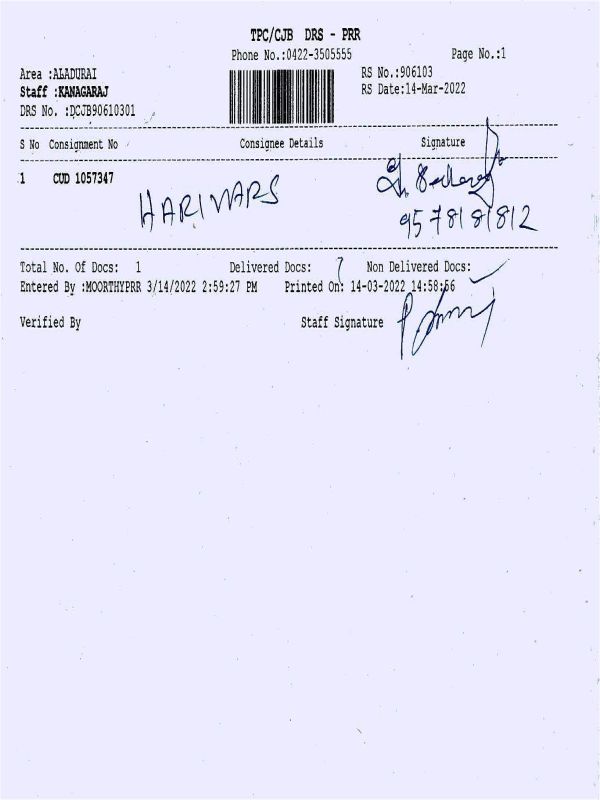 TPC/CJB DRS - PRR
Phone No.:0422-3505555 Page No.:1
Area :ALADURAI RS No.:906103
Staff :KANAGARAJ RS Date:14-Mar-2022
DRS No. :DCJB90610301
S No Consignment No Consignee Details Signature
1 CUD 1057347
HARIVARS
9578181812
Total No. Of Docs: 1 Delivered Docs: Non Delivered Docs:
Entered By :MOORTHYPRR 3/14/2022 2:59:27 PM Printed On: 14-03-2022 14:58:56
Verified By Staff Signature